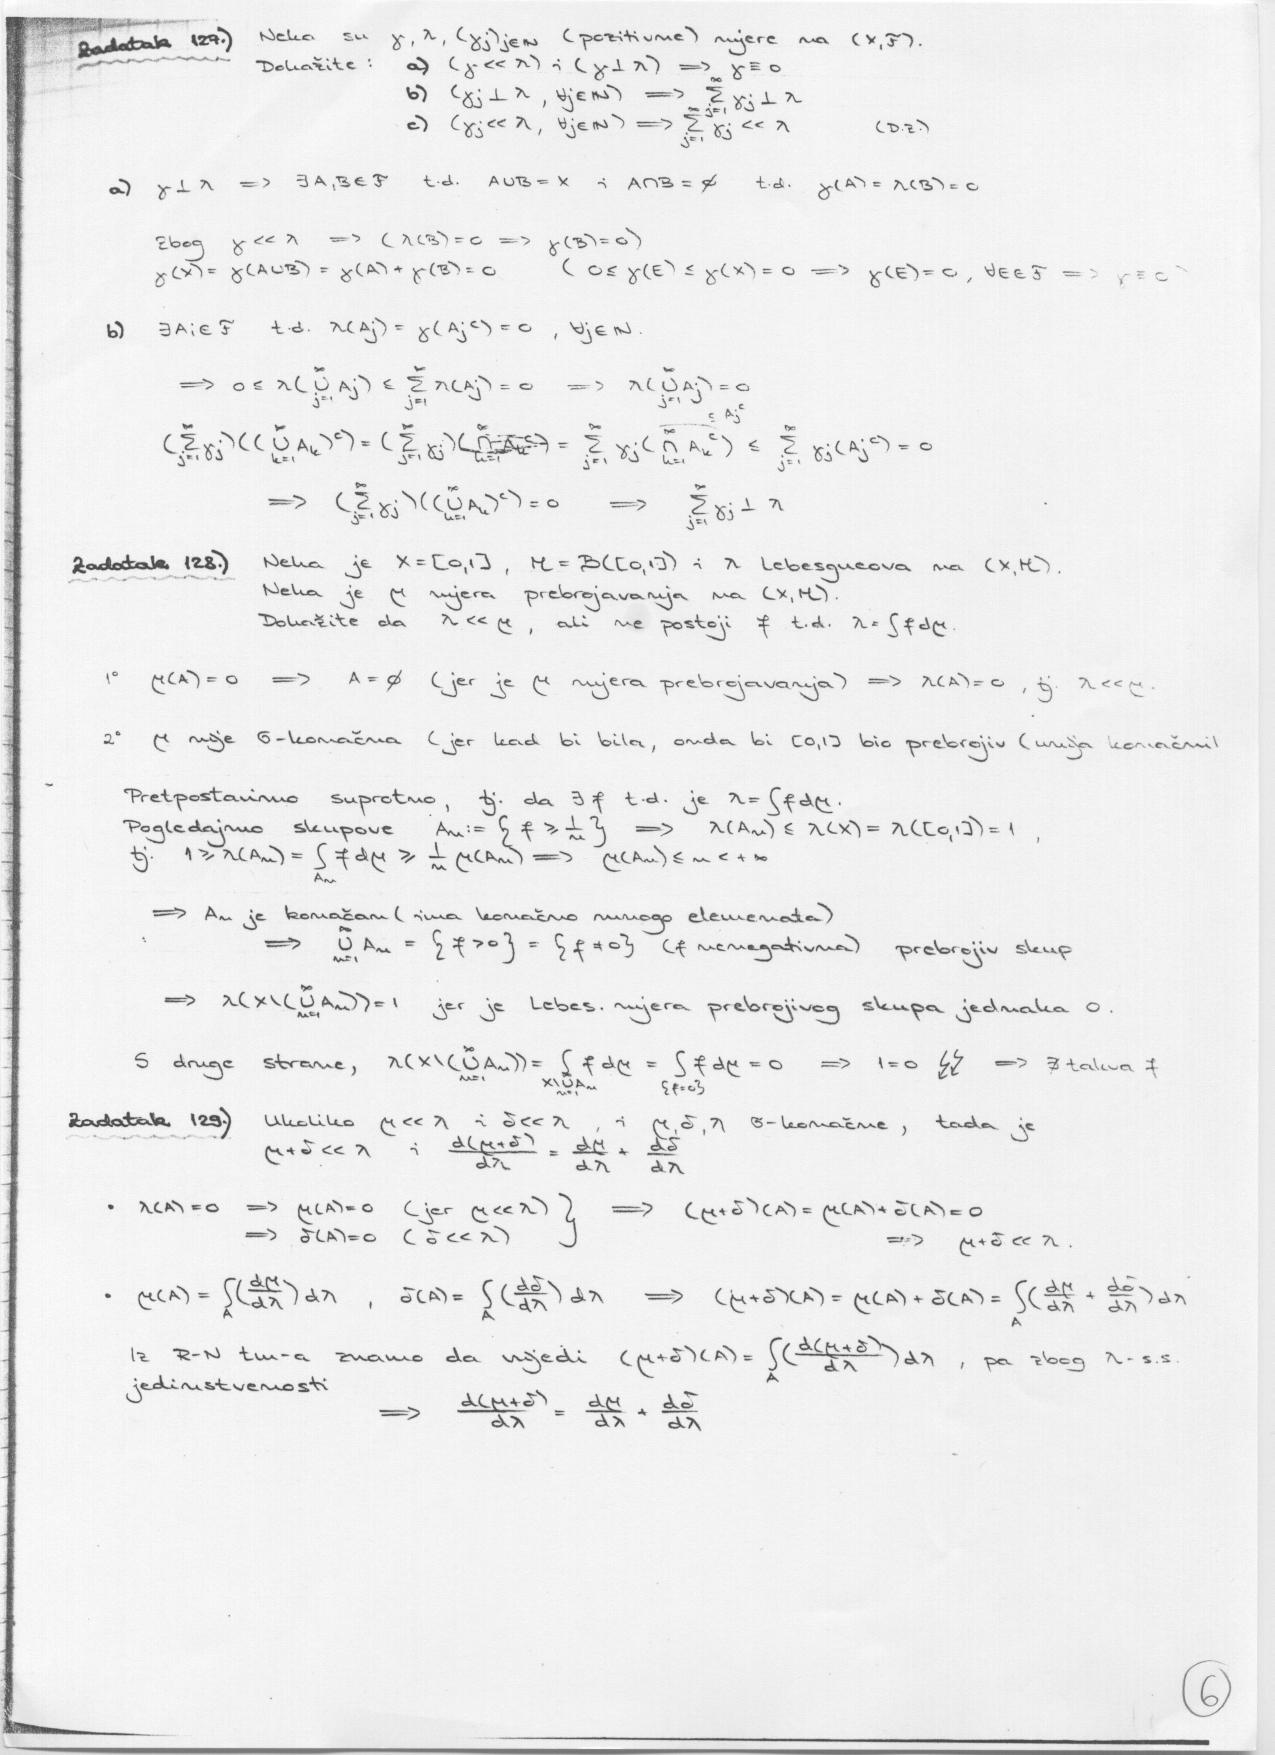 Zadatak 127.) Neka su γ, λ, (γj)j∈ℕ (pozitivne) mjere na (X,F).
Dokažite: a) (γ<<λ) i (γ⊥λ) => γ≡0
b) (γj⊥λ, ∀j∈ℕ) => ∑_{j=1}^∞ γj⊥λ
c) (γj<<λ, ∀j∈ℕ) => ∑_{j=1}^∞ γj<<λ (D.Z.)
a) γ⊥λ => ∃A,B∈F t.d. A∪B=X i A∩B=∅ t.d. γ(A)=λ(B)=0
Zbog γ<<λ => (λ(B)=0 => γ(B)=0)
γ(X)=γ(A∪B)=γ(A)+γ(B)=0 (0≤γ(E)≤γ(X)=0 => γ(E)=0, ∀E∈F => γ≡0
b) ∃Aj∈F t.d. λ(Aj)=γ(Aj^c)=0, ∀j∈ℕ.
=> 0≤λ(⋃_{j=1}^∞ Aj) ≤ ∑_{j=1}^∞ λ(Aj)=0 => λ(⋃_{j=1}^∞ Aj)=0
⊆ Aj^c
(∑_{j=1}^∞ γj)((⋃_{k=1}^∞ Ak)^c)=(∑_{j=1}^∞ γj)(⋂_{k=1}^∞ Ak^c)=∑_{j=1}^∞ γj(⋂_{k=1}^∞ Ak^c) ≤ ∑_{j=1}^∞ γj(Aj^c)=0
=> (∑_{j=1}^∞ γj)((⋃_{k=1}^∞ Ak)^c)=0 => ∑_{j=1}^∞ γj⊥λ
Zadatak 128.) Neka je X=[0,1], M=B([0,1]) i λ Lebesgueova na (X,M).
Neka je μ mjera prebrojavanja na (X,M).
Dokažite da λ<<μ, ali ne postoji f t.d. λ=∫f dμ.
1° μ(A)=0 => A=∅ (jer je μ mjera prebrojavanja) => λ(A)=0, tj. λ<<μ.
2° μ nije σ-konačna (jer kad bi bila, onda bi [0,1] bio prebrojiv (unija konačnih
Pretpostavimo suprotno, tj. da ∃f t.d. je λ=∫f dμ.
Pogledajmo skupove An:={f≥1/n} => λ(An)≤λ(X)=λ([0,1])=1,
tj. 1≥λ(An)=∫_{An} f dμ ≥ 1/n μ(An) => μ(An)≤n<+∞
=> An je konačan (ima konačno mnogo elemenata)
=> ⋃_{n=1}^∞ An={f>0}={f≠0} (f nenegativna) prebrojiv skup
=> λ(X\(⋃_{n=1}^∞ An))=1 jer je Lebes. mjera prebrojivog skupa jednaka 0.
S druge strane, λ(X\(⋃_{n=1}^∞ An))=∫_{X\⋃_{n=1}^∞ An} f dμ=∫_{{f=0}} f dμ=0 => 1=0 ↯↯ => ∄ takva f
Zadatak 129.) Ukoliko μ<<λ i δ<<λ, i μ,δ,λ σ-konačne, tada je
μ+δ<<λ i d(μ+δ)/dλ = dμ/dλ + dδ/dλ
• λ(A)=0 => μ(A)=0 (jer μ<<λ) } => (μ+δ)(A)=μ(A)+δ(A)=0
=> δ(A)=0 (δ<<λ) => μ+δ<<λ.
• μ(A)=∫_A (dμ/dλ)dλ, δ(A)=∫_A (dδ/dλ)dλ => (μ+δ)(A)=μ(A)+δ(A)=∫_A (dμ/dλ + dδ/dλ)dλ
Iz R-N tm-a znamo da vrijedi (μ+δ)(A)=∫_A (d(μ+δ)/dλ)dλ, pa zbog λ-s.s.
jedinstvenosti
=> d(μ+δ)/dλ = dμ/dλ + dδ/dλ
6